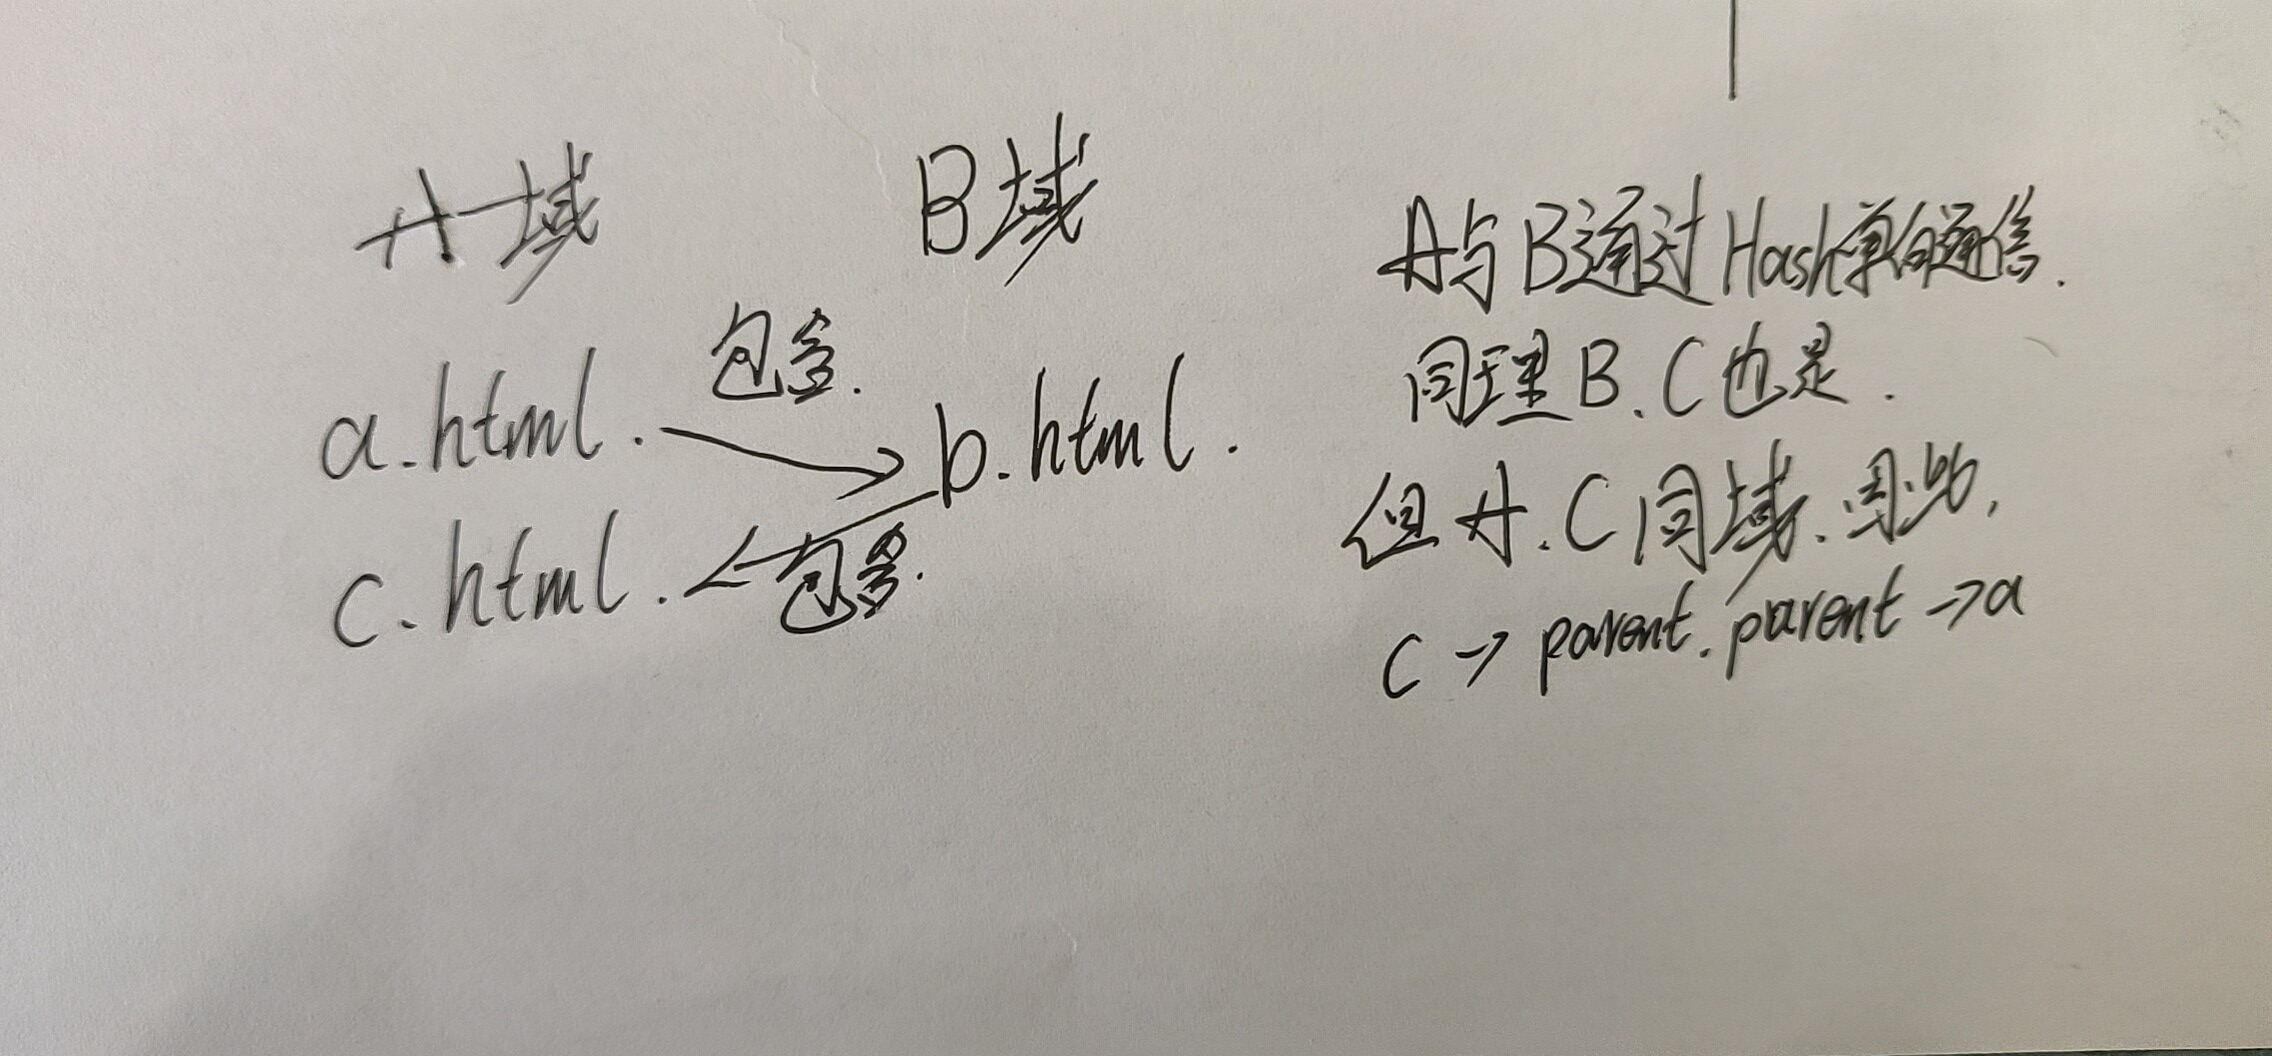 A域
B域
包含.
a.html.
b.html.
c.html.
包含.
A与B通过Hash单向通信.
同理B.C也是.
但A.C同域.因此,
C→parent.parent→a